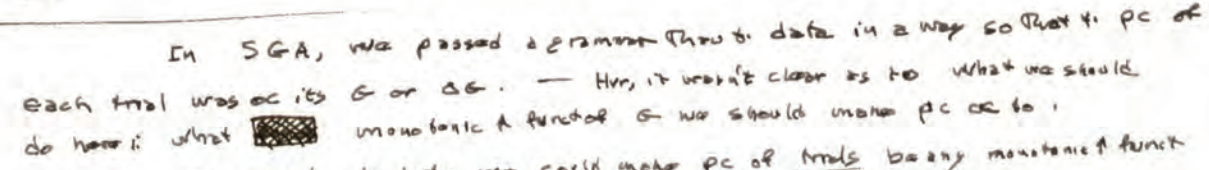 In SGA, we passed a grammar thru t. data in a way so that t. pc of
each trial was ∝ its G or ΔG. — Hvr, it wasn't clear as to what we should
do here: what monotonic ↑ funct of G we should make pc ∝ to.
we could make pc of trials be any monotonic ↑ funct